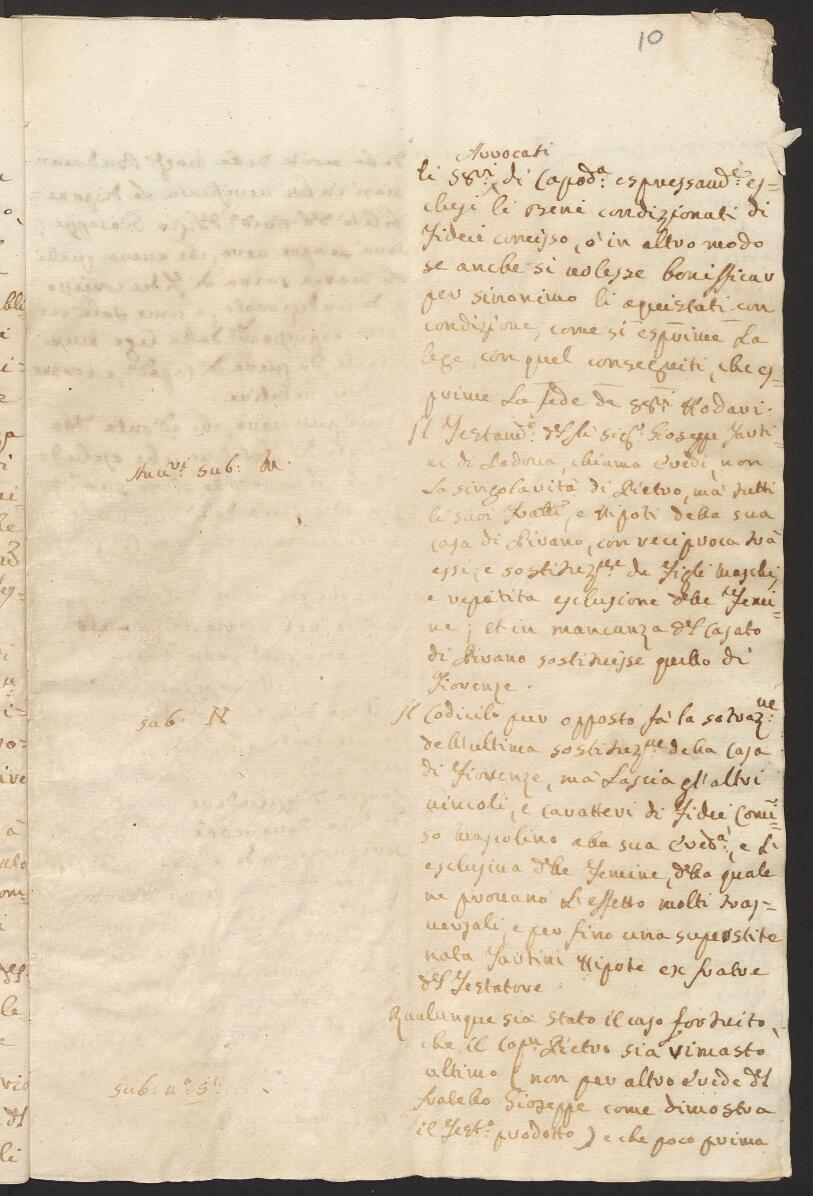 10
Avvocati
li SS:ri di Capod:a espressam:te es=
clusi li Beni condizzionati di
Fideicomisso, o' in altro modo
se anche si volesse bonifficar
per sinonimo li aquistati con
condizione, come si esprime La
lege, con quel conseguiti, che es=
prime La fede de SS:ri Rodari.
Il Testam:to del fù Sig:r Gioseppe Tarti=
ni di Padova, chiama Eredi, non
La singolarità di Pietro, ma tutti
li suoi Fratelli, e Nipoti della sua
casa di Pirano, con reciproca trà
essi, e sostituz:ne de Figli Maschi,
e repetita esclusione delle Femi=
ne; et in mancanza del Casato
di Pirano sostituisse quello di
Fiorenze.
sub: N
Il Codicilo pur opposto fà la
dell'ultima sostituz:ne della Casa
di Fiorenze, mà Lascia gl'altri
vincoli, e caratteri di Fidei Comis=
so Mascolino alla sua Eredità, e L'
esclusiva delle Femine, della quale
ne provano L'effetto molti tras=
versali, e per fino una superstite
nata Tartini Nipote ex fratre
del Testatore.
Qualunque sia stato il caso fortuito,
che il Cap:n Pietro sia rimasto
ultimo (non per altro Erede del
fratello Gioseppe come dimostra
sub: n:o 5:
il Test:o prodotto) e che poco prima